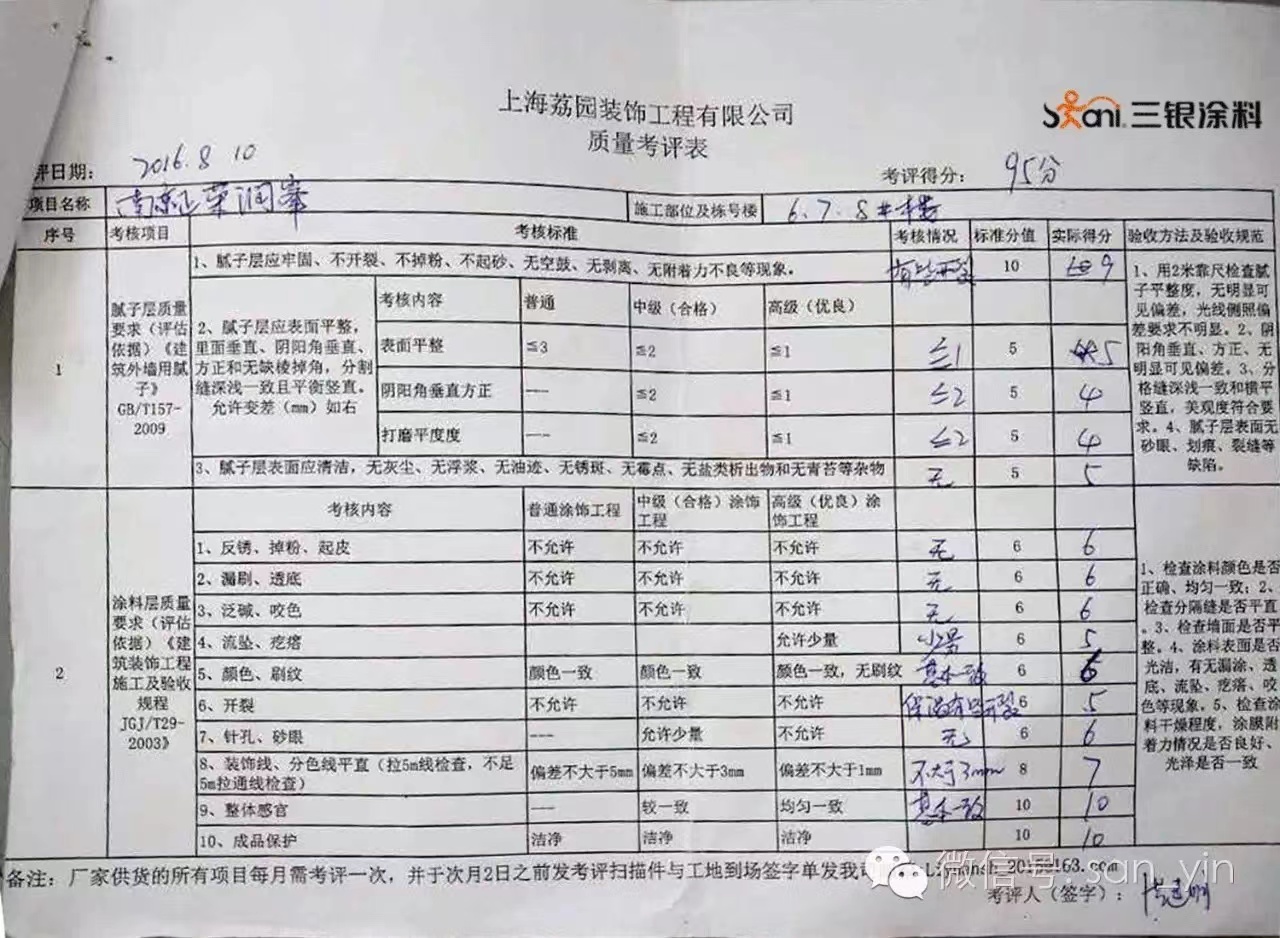 上海荔园装饰工程有限公司
Skani 三银涂料
质量考评表
评日期： 2016.8 10
考评得分： 95分
项目名称 南京正荣润峯 施工部位及栋号楼 6.7.8#楼
序号 考核项目 考核标准 考核情况 标准分值 实际得分 验收方法及验收规范
1
腻子层质量
要求（评估
依据）《建
筑外墙用腻
子》
GB/T157-
2009
1、腻子层应牢固、不开裂、不掉粉、不起砂、无空鼓、无剥离、无附着力不良等现象。 10 9
2、腻子层应表面平整，
里面垂直、阴阳角垂直、
方正和无缺棱掉角，分割
缝深浅一致且平衡竖直。
允许变差（mm）如右
考核内容 普通 中级（合格） 高级（优良）
表面平整 ≦3 ≦2 ≦1 ≤1 5 5
阴阳角垂直方正 --- ≦2 ≦1 ≤2 5 4
打磨平度度 --- ≦2 ≦1 ≤2 5 4
3、腻子层表面应清洁，无灰尘、无浮浆、无油迹、无锈斑、无霉点、无盐类析出物和无青苔等杂物 无 5 5
1、用2米靠尺检查腻
子平整度，无明显可
见偏差，光线侧照偏
差要求不明显。2、阴
阳角垂直、方正、无
明显可见偏差。3、分
格缝深浅一致和横平
竖直，美观度符合要
求。4、腻子层表面无
砂眼、划痕、裂缝等
缺陷。
2
涂料层质量
要求（评估
依据）《建
筑装饰工程
施工及验收
规程
JGJ/T29-
2003》
考核内容 普通涂饰工程 中级（合格）涂饰工程 高级（优良）涂饰工程
1、反锈、掉粉、起皮 不允许 不允许 不允许 无 6 6
2、漏刷、透底 不允许 不允许 不允许 无 6 6
3、泛碱、咬色 不允许 不允许 不允许 无 6 6
4、流坠、疙瘩 允许少量 少量 6 5
5、颜色、刷纹 颜色一致 颜色一致 颜色一致，无刷纹 基本一致 6 6
6、开裂 不允许 不允许 不允许 保温有些开裂 6 5
7、针孔、砂眼 --- 允许少量 不允许 无 6 6
8、装饰线、分色线平直（拉5m线检查，不足
5m拉通线检查） 偏差不大于5mm 偏差不大于3mm 偏差不大于1mm 不大于3mm 8 7
9、整体感官 --- 较一致 均匀一致 基本一致 10 10
10、成品保护 洁净 洁净 洁净 10 10
1、检查涂料颜色是否
正确、均匀一致；2、
检查分隔缝是否平直
。3、检查墙面是否平
整。4、涂料表面是否
光洁，有无漏涂、透
底、流坠、疙瘩、咬
色等现象。5、检查涂
料干燥程度，涂膜附
着力情况是否良好、
光泽是否一致
备注：厂家供货的所有项目每月需考评一次，并于次月2日之前发考评扫描件与工地到场签字单发我
微信号: san_yin
考评人（签字）：